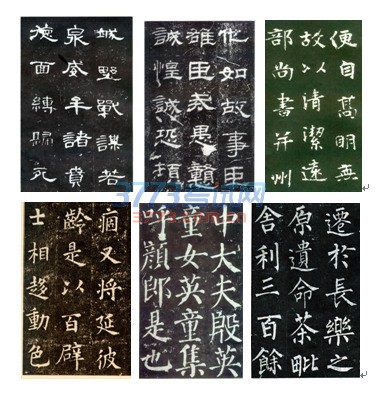 城野戰謀若
泉威牟諸賁
德面縛歸死
他如故事臣
雄臣戒愚贛
誠惶誠恐頓
便自高明無
故以清潔遠
部尚書并州
痼又將延彼
齡是以百辟
士相趍動色
中大夫殷英
童女英童集
呼顏郎是也
遷於長樂之
原遺命荼毗
舍利三百餘
3773考试网